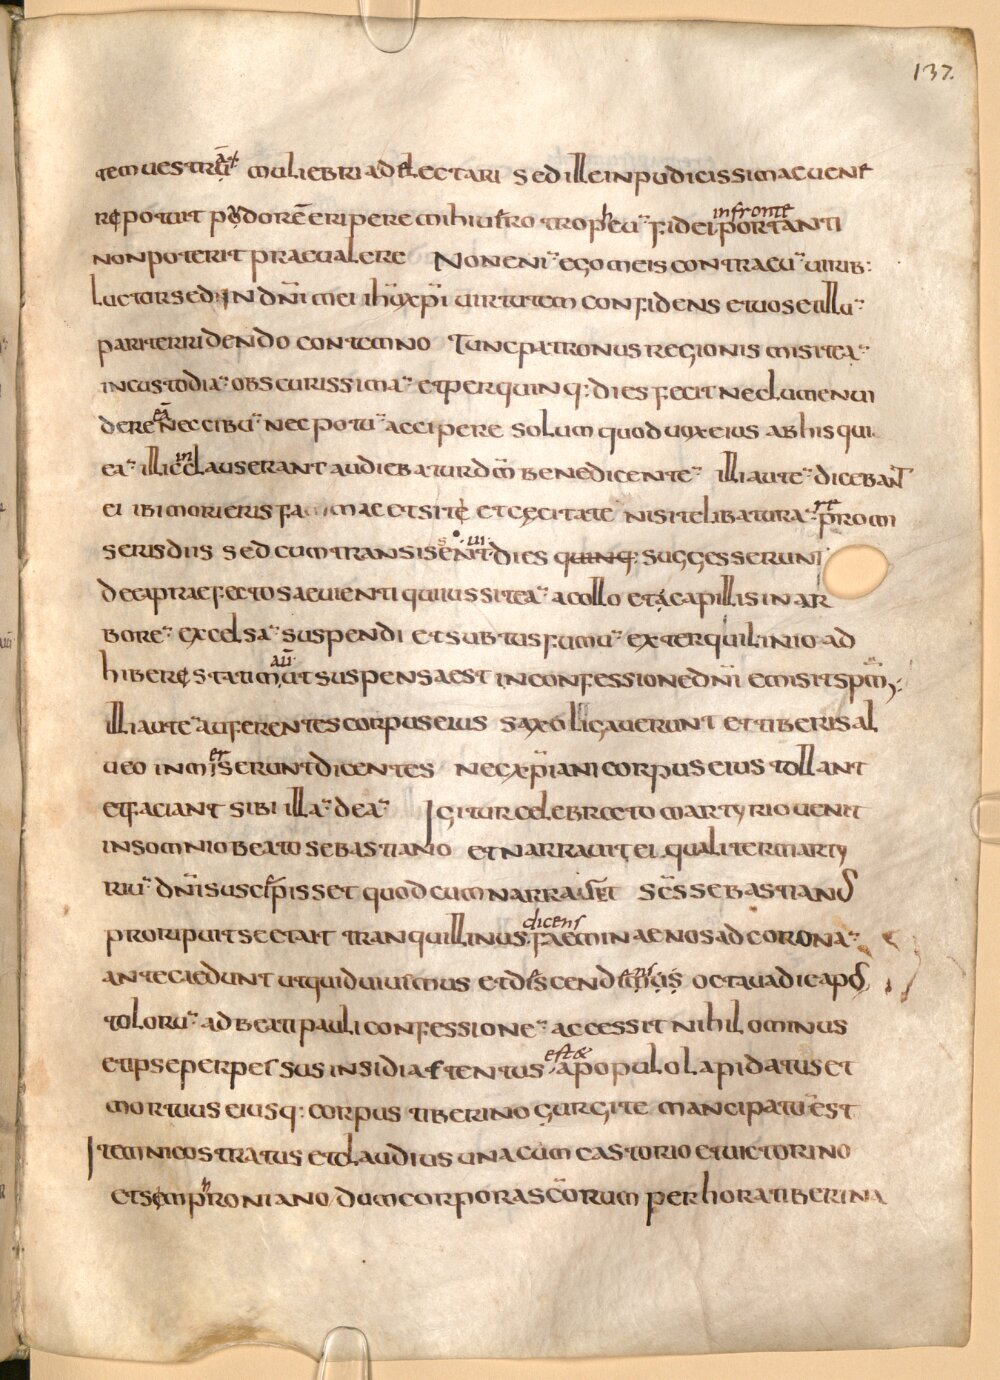 137.
tem uestrā muliebri adflectari sed ille inpudicissimae uene
re potuit pudorē eripere mihi uero tropheū fidei in fronte portanti
non poterit praeualere Non enī ego meis contra eū uirib:
luctor sed in dn̄i mei ihū xp̄i uirtutem confidens et uos et illū
pariter ridendo contemno Tunc patronus regionis misit eā
in custodiā obscurissimā et per quinq: dies fecit nec lumen ui
dere eā nec cibū nec potū accipere solum quod uox eius ab his qui
eā illic inclauserant audiebatur dm̄ benedicentē Illi autē dicebant
ei ibi morieris fame et siti et cecitate nisi te libaturā re promi
seris diis sed cum transissent .iii. dies quinq: suggesserunt
de ea praefecto saeuienti qui iussit eā a collo et a capillis in ar
bore excelsā suspendi et subtus fumū ex terquilinio ad
hiberi statim aū ut suspensa est in confessione dn̄i emisit spm̄;
Illi autē auferentes corpus eius saxo ligauerunt et tiberis al
ueo inmerserunt dicentes ne cxp̄iani corpus eius tollant
et faciant sibi illā deā Igitur celebrato martyrio uenit
in somnio beato sebastiano et narrauit ei qualiter marty
riū dn̄i suscepisset quod cum narrasset sc̄s sebastianus
proripuit se et ait tranquillinus dicens faeminae nos ad coronā
antecedunt ut quid uiuimus et discendens octaua die apos
tolorū ad beati pauli confessionē accessit nihilominus
et ipse perpessus insidias tentus est & a populo lapidatus et
mortuus eiusq: corpus tiberino gurgite mancipatū est
Item nicostratus et claudius una cum castorio et uictorino
et semproniano dum corpora sc̄orum per hora tiberina